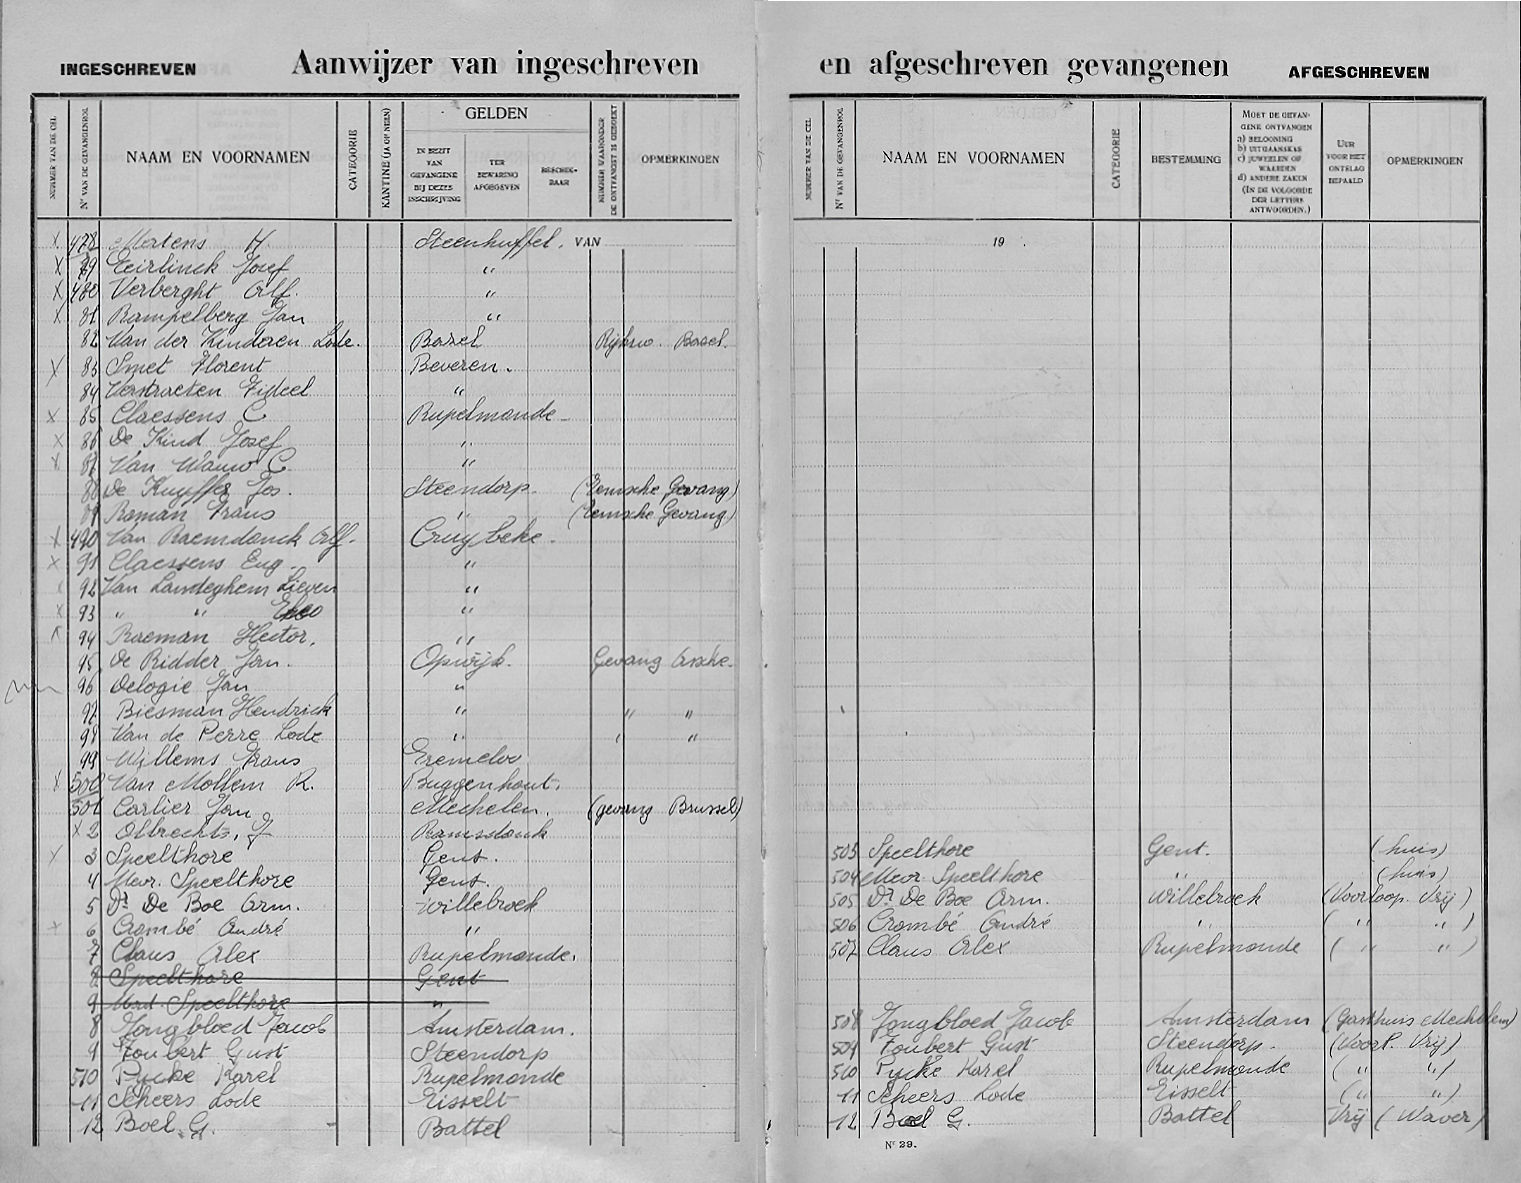 INGESCHREVEN Aanwijzer van ingeschreven en afgeschreven gevangenen AFGESCHREVEN
NUMMER VAN DE CEL
Nr VAN DE GEVANGENROL
NAAM EN VOORNAMEN
CATEGORIE
KANTINE (JA OF NEEN)
GELDEN
IN BEZIT VAN GEVANGENE BIJ DEZES INSCHRIJVING
TER BEWARING AFGEGEVEN
BESCHIKBAAR
NUMMER WAARONDER DE ONTVANGST IS GEBOEKT
OPMERKINGEN
X 478 Mertens H. Steenhuffel. VAN
X 79 Eeirlinck Josef "
X 480 Verberght Alf. "
X 81 Rampelberg Jan "
82 Van der Kinderen Lode. Basel Rijksw. Basel.
X 83 Smet Florent Beveren.
84 Verstraeten Fideel "
X 85 Claessens C Rupelmonde
X 86 De Kind Josef "
X 87 Van Wauw C "
88 De Kuyffer Jos. Steendorp. (Temsche Gevang)
89 Roman Frans " (Temsche Gevang)
X 490 Van Raemdonck Alf. Cruybeke.
X 91 Claessens Eug. "
X 92 Van Landeghem Lieven "
X 93 " " "
94 Raeman Hector. "
95 De Ridder Jan. Opwijk. Gevang Assche.
96 Delogie Jan "
97 Biesman Hendrick " " "
98 Van de Perre Lode " " "
99 Willems Frans Tremeloo
X 500 Van Mollem R. Buggenhout.
501 Carlier Jan Mechelen. (gevang Brussel)
X 2 Olbrechts, J Ramsdonk
X 3 Speelthore Gent.
4 Mevr. Speelthore Gent.
5 Dr De Boe Arm. Willebroek
X 6 Crombé André "
7 Claus Alex Rupelmonde.
8 Speelthore Gent
9 Mevr. Speelthore "
8 Jongbloed Jacob Amsterdam.
9 Foubert Gust Steendorp
510 Pycke Karel Rupelmonde
11 Scheers Lode Tisselt
12 Boel G. Battel
NUMMER VAN DE CEL
Nr VAN DE GEVANGENROL
NAAM EN VOORNAMEN
CATEGORIE
BESTEMMING
MOET DE GEVANGENE ONTVANGEN
a) BELOONING
b) UITGAANSKAS
c) JUWEELEN OF WAARDEN
d) ANDERE ZAKEN
(IN DE VOLGORDE DER LETTERS ANTWOORDEN.)
UUR VOOR HET ONTSLAG BEPAALD
OPMERKINGEN
19 .
503 Speelthore Gent. (huis)
504 Mevr Speelthore " (huis)
505 Dr De Boe Arm. Willebroek (Voorloop. Vrij)
506 Crombé André " ( " " )
507 Claus Alex Rupelmonde ( " " )
508 Jongbloed Jacob Amsterdam (Gasthuis Mechelen)
509 Foubert Gust Steendorp. (Voorl. Vrij)
510 Pycke Karel Rupelmonde ( " " )
11 Scheers Lode Tisselt ( " " )
12 Boel G. Battel Vrij (Waver)
Nr 29.